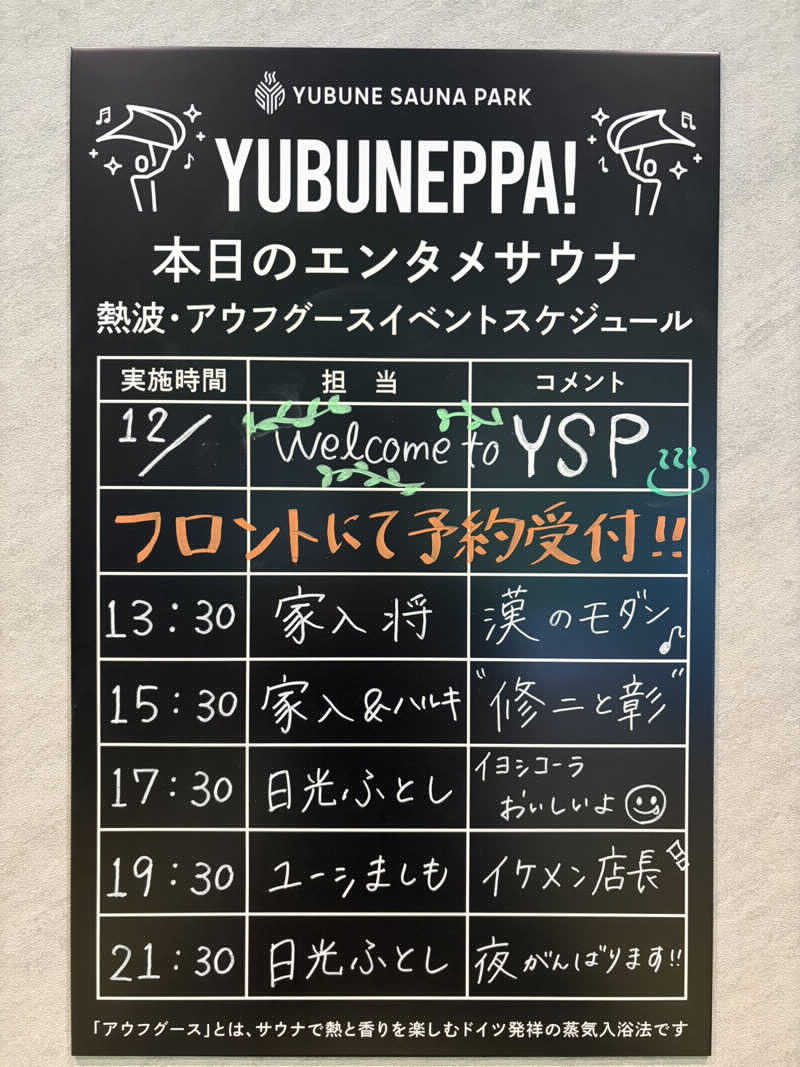 YUBUNE SAUNA PARK
YUBUNEPPA!
本日のエンタメサウナ
熱波・アウフグースイベントスケジュール
実施時間 担 当 コメント
12/ Welcome to YSP
フロントにて予約受付!!
13:30 家入将 漢のモダン♪
15:30 家入&ハルキ "修二と彰"
17:30 日光ふとし イヨシコーラ
おいしいよ
19:30 ユーシましも イケメン店長
21:30 日光ふとし 夜がんばります!!
「アウフグース」とは、サウナで熱と香りを楽しむドイツ発祥の蒸気入浴法です